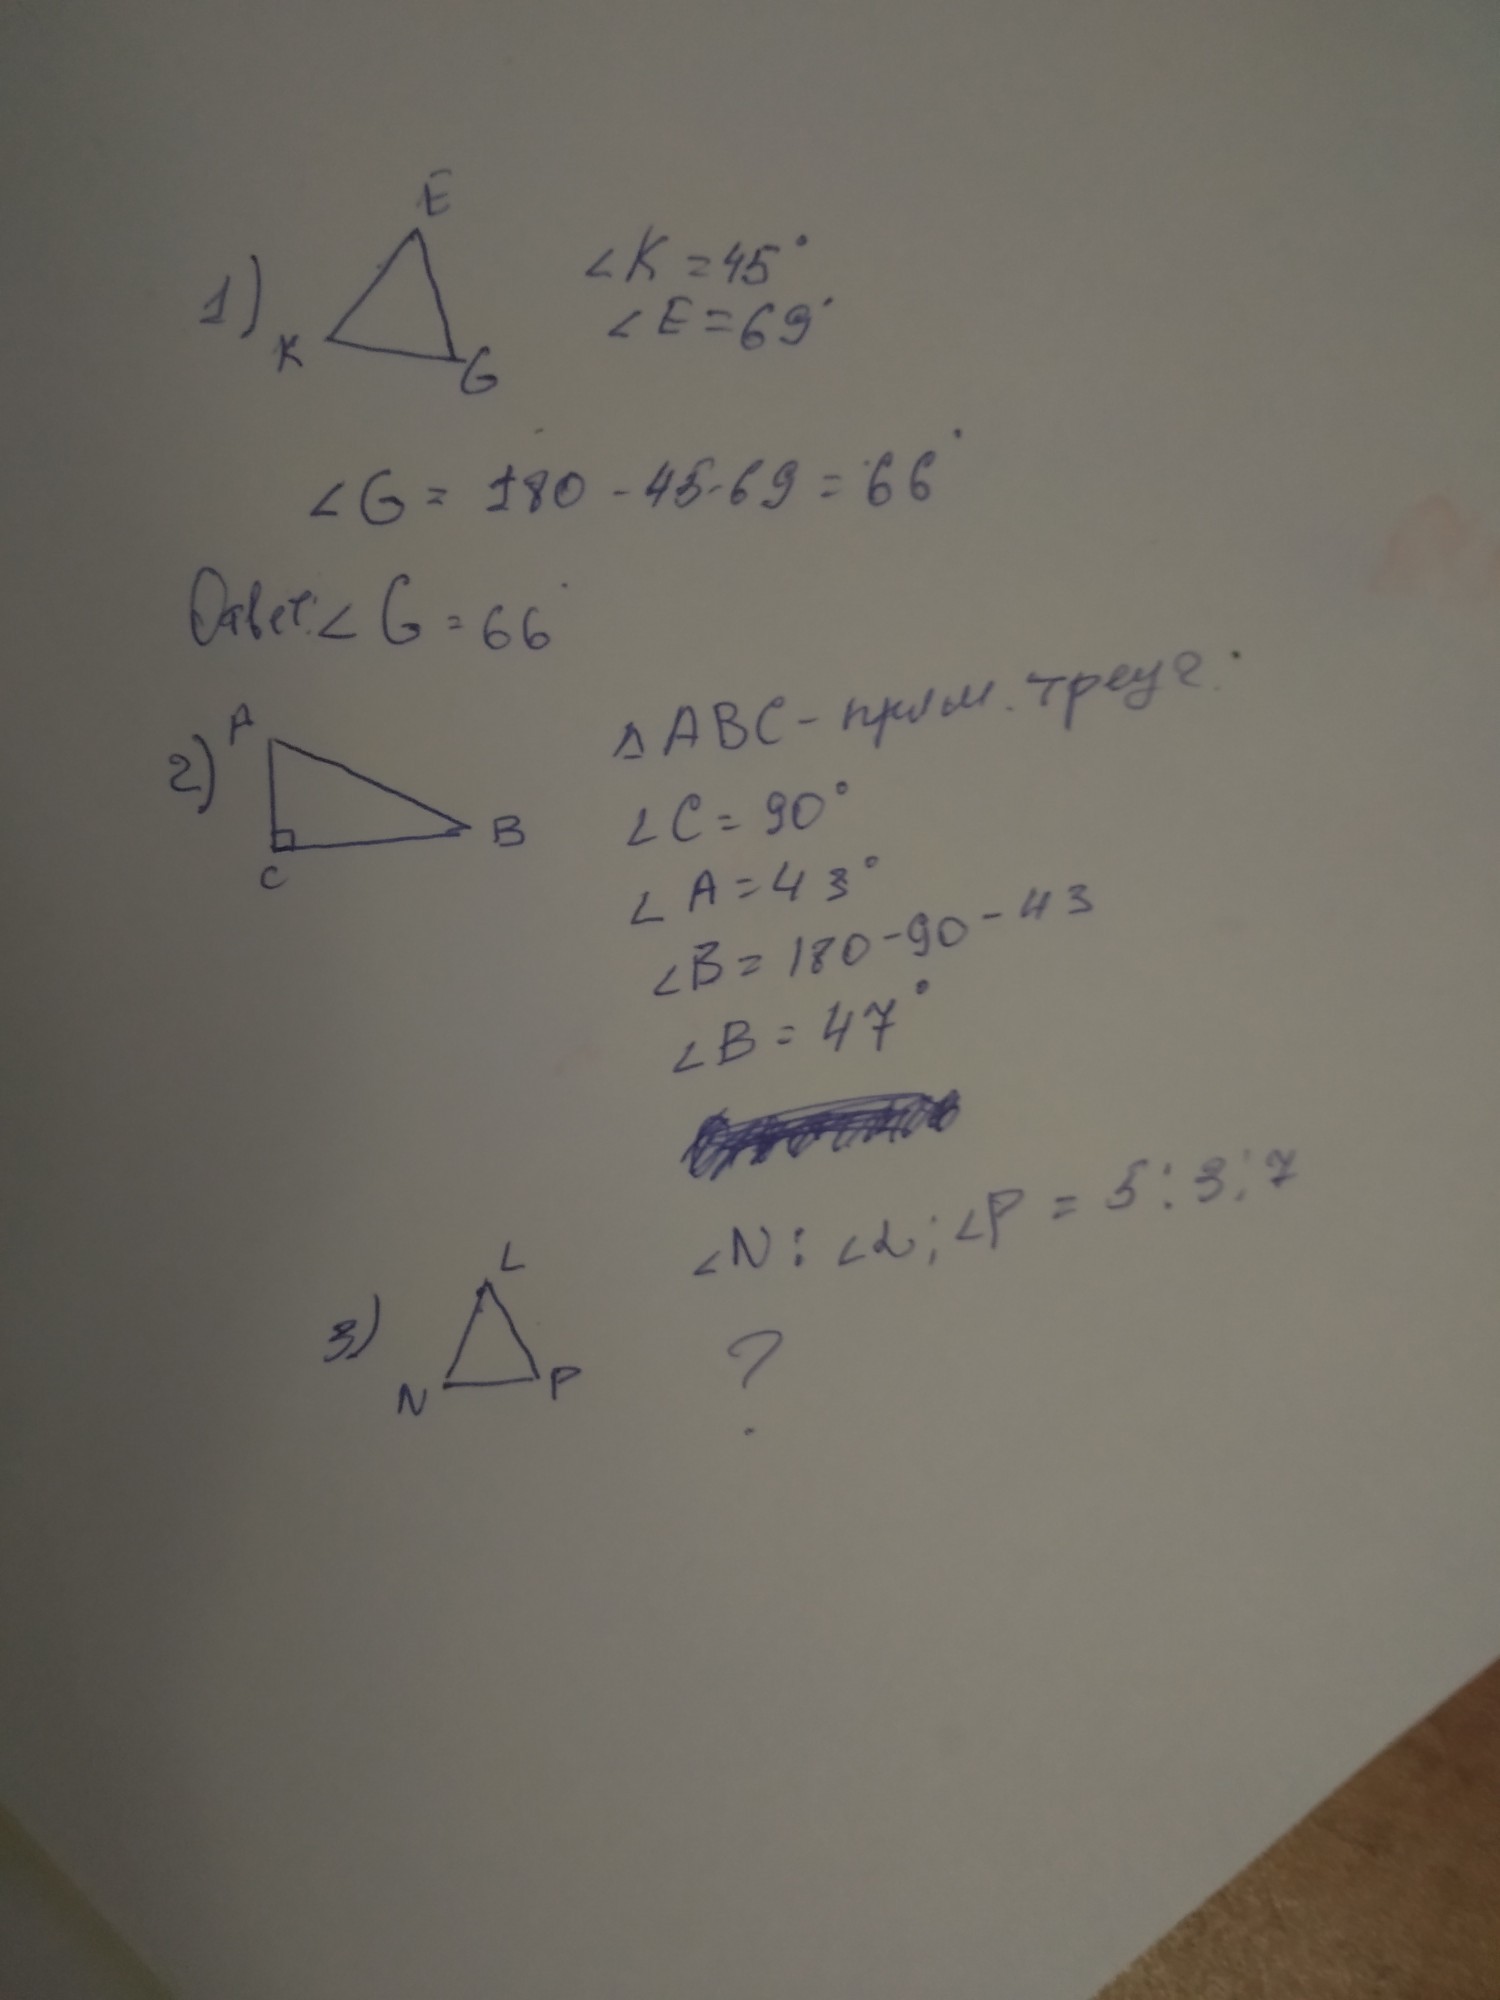 1)
E
K
G
∠K = 45°
∠E = 69°
∠G = 180 - 45 - 69 = 66°
Ответ: ∠G = 66°
2)
A
C
B
△ABC - прям. треуг.
∠C = 90°
∠A = 43°
∠B = 180 - 90 - 43
∠B = 47°
3)
L
N
P
∠N : ∠L : ∠P = 5 : 3 : 7
?